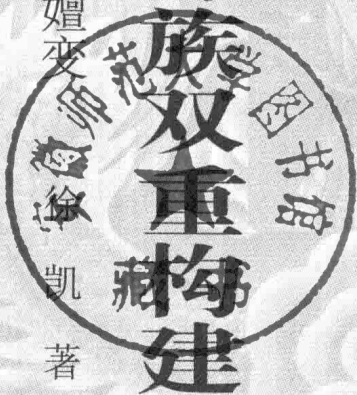 族双重构建
嬗变
徐凯 著
安徽师范大学图书馆
藏书